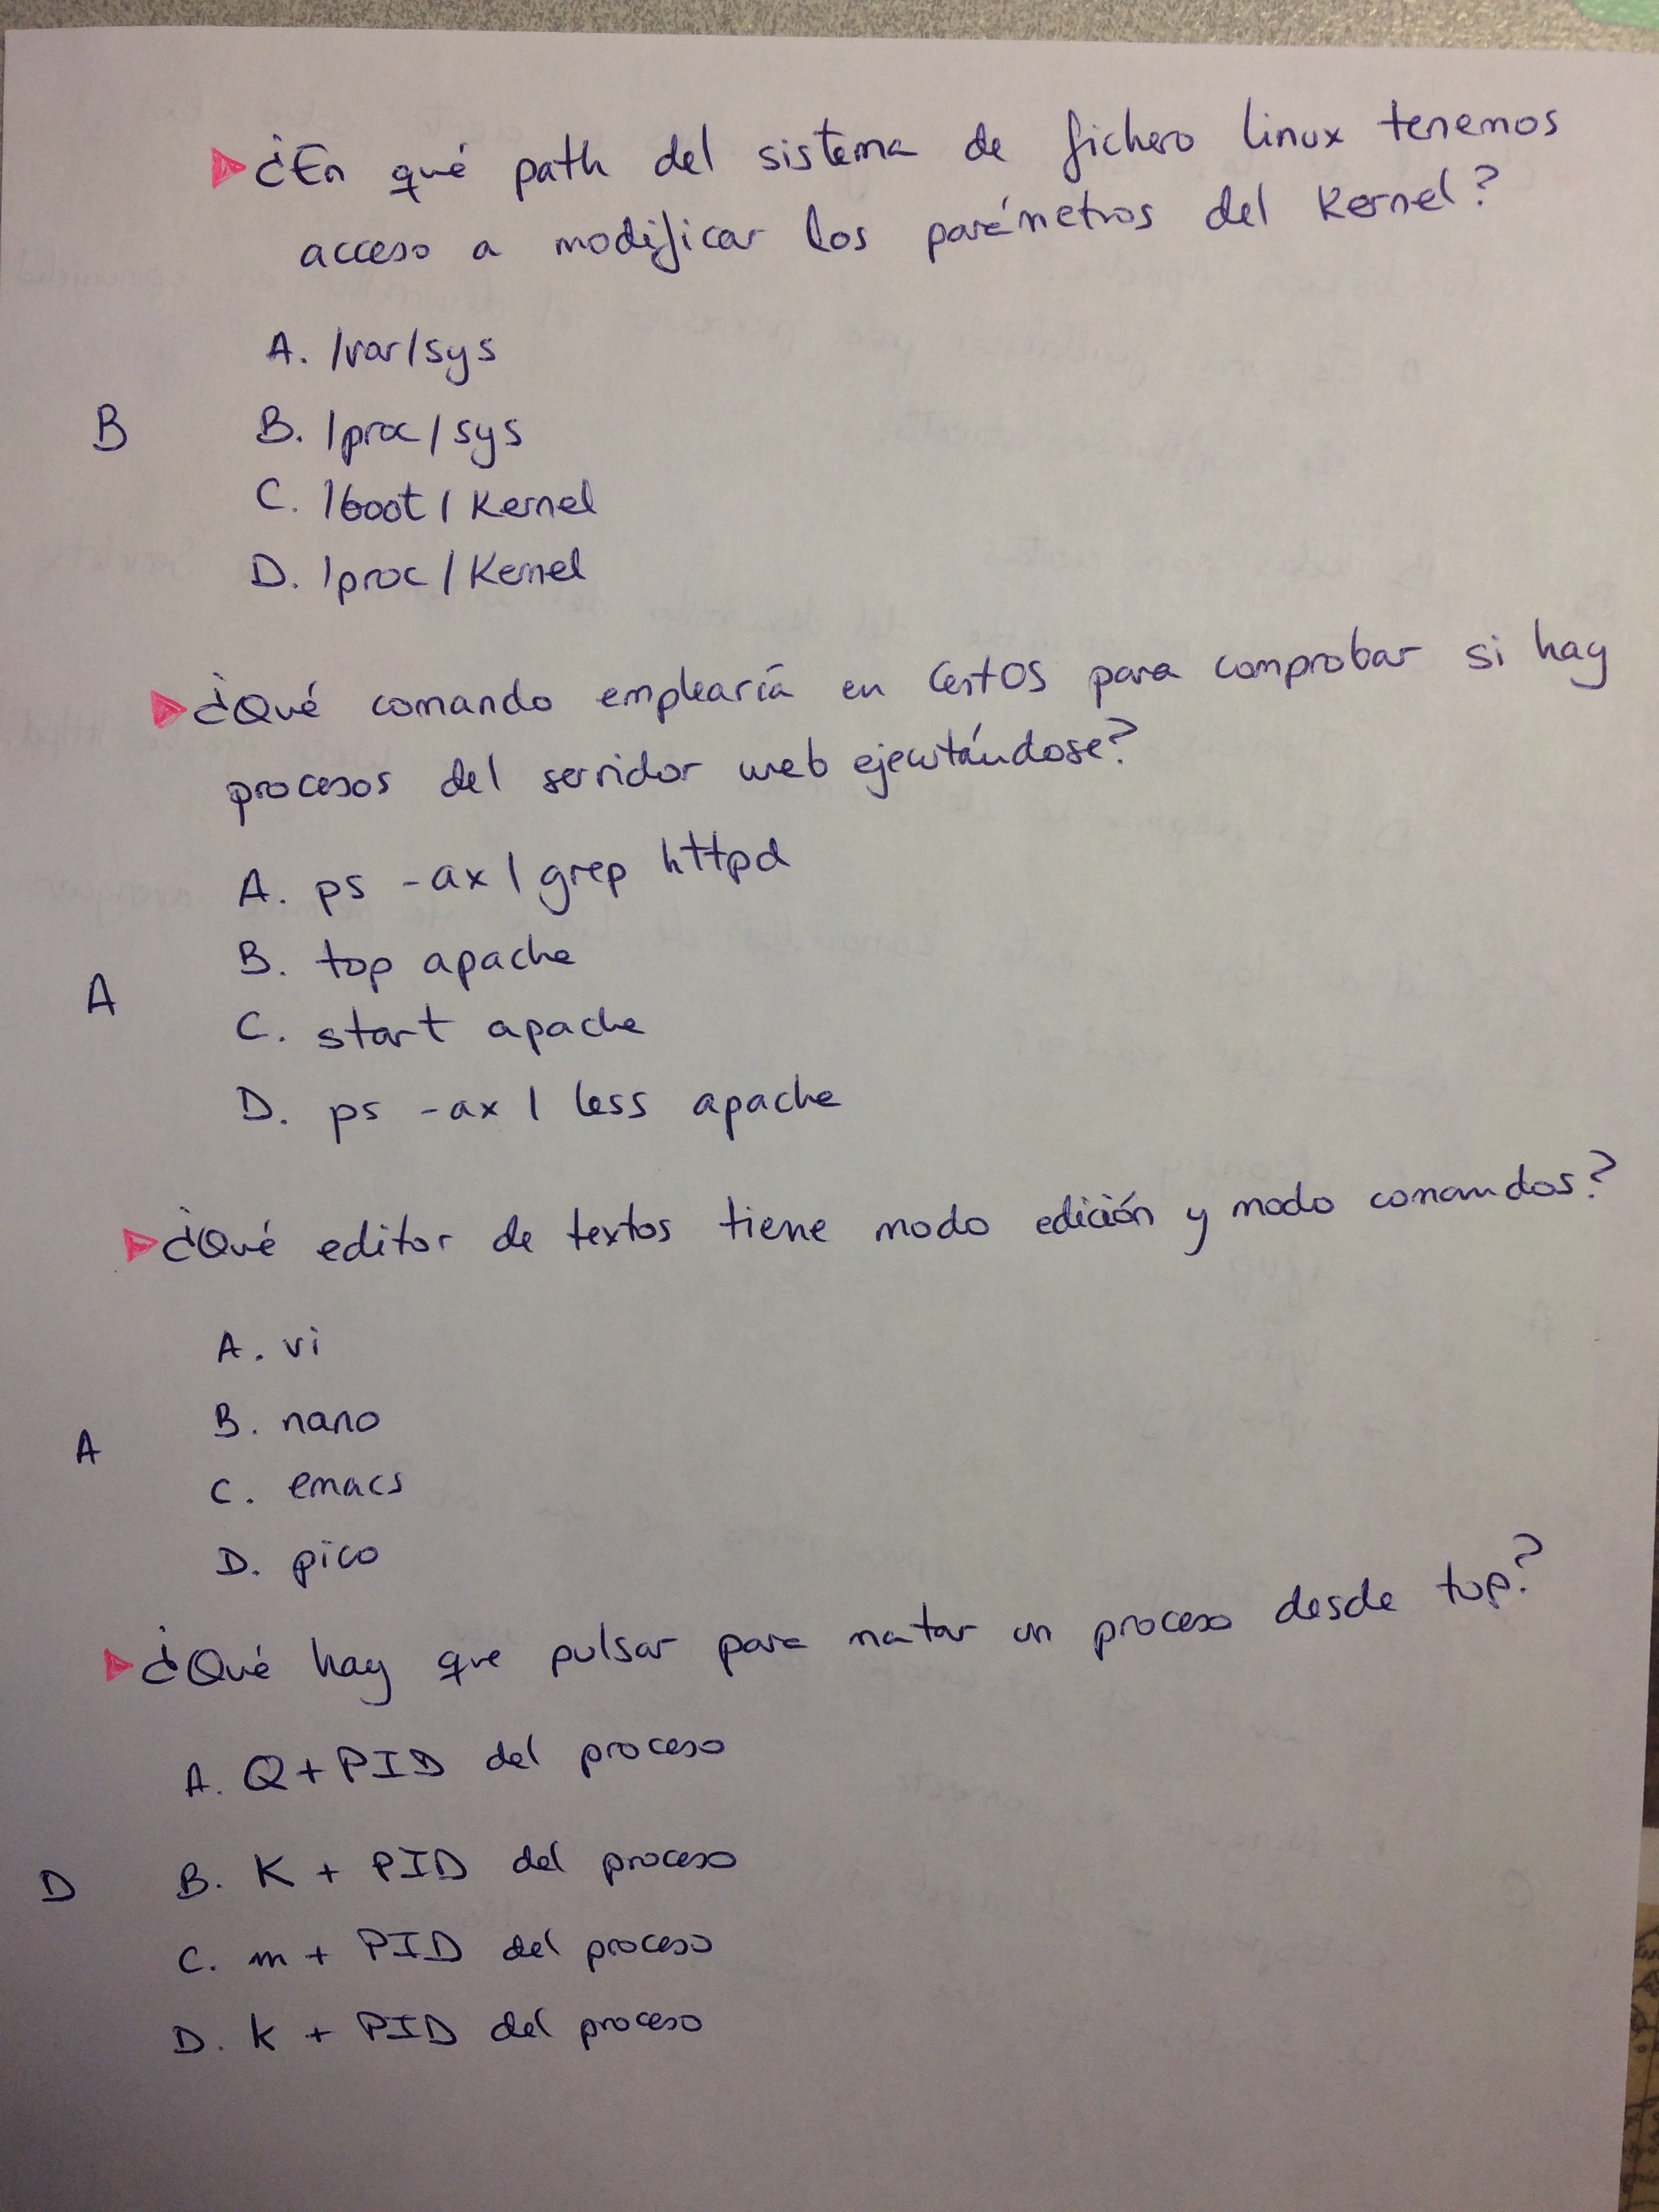 ¿En qué path del sistema de fichero linux tenemos
acceso a modificar los parámetros del Kernel?
A. /var/sys
B B. /proc/sys
C. /boot/Kernel
D. /proc/Kernel
¿Qué comando emplearía en CentOS para comprobar si hay
procesos del servidor web ejecutándose?
A. ps -ax | grep httpd
B. top apache
A
C. start apache
D. ps -ax | less apache
¿Qué editor de textos tiene modo edición y modo comandos?
A. vi
B. nano
A
C. emacs
D. pico
¿Qué hay que pulsar para matar un proceso desde top?
A. Q + PID del proceso
D B. K + PID del proceso
C. m + PID del proceso
D. k + PID del proceso